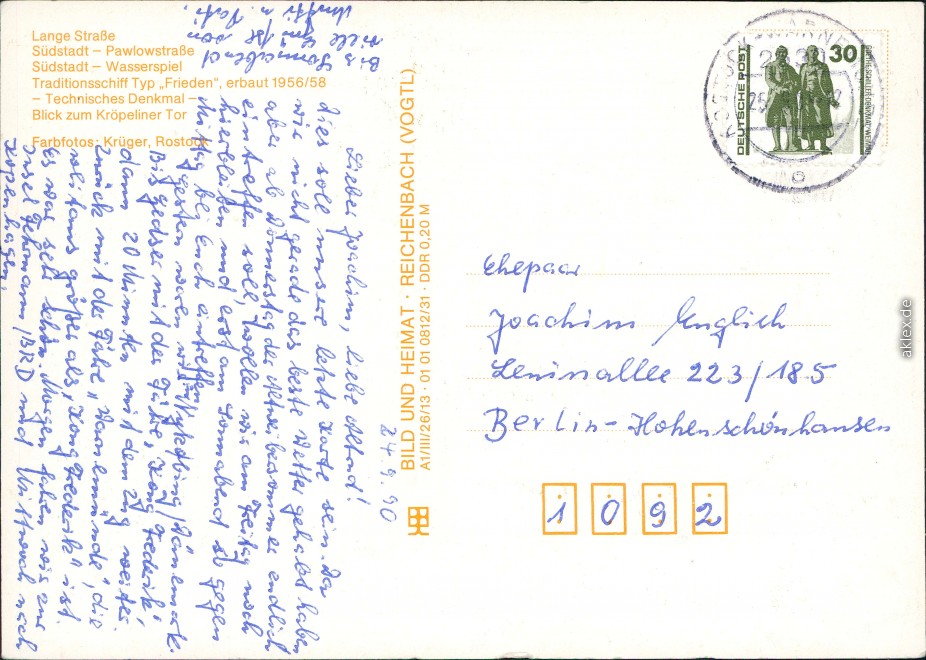 Lange Straße
Südstadt – Pawlowstraße
Südstadt – Wasserspiel
Traditionsschiff Typ „Frieden“, erbaut 1956/58
– Technisches Denkmal –
Blick zum Kröpeliner Tor
Farbfotos: Krüger, Rostock
BILD UND HEIMAT · REICHENBACH (VOGTL)
A1/III/26/13 · 01 01 0812/31 · DDR 0,20 M
24. 9. 90
Lieber Joachim, liebe Altrud!
Dies soll unsere letzte Karte sein. Da
wir nicht gerade das beste Wetter gehabt haben
aber ab Donnerstag der Altweibersommer endlich
eintreffen soll, wollen wir am Freitag noch
hierbleiben und erst am Sonnabend so gegen
Mittag bei Euch eintreffen.
Gestern waren wir in Nyköbing/Dänemark.
Bis Gedser mit der Fähre „Kong Frederik“,
dann 20 Minuten mit dem Zug weiter.
Zurück mit der Fähre „Warnemünde“, die
weitaus größer als „Kong Frederik“ ist.
Es war sehr schön. Morgen fahren wir zur
Insel Fehmarn/BRD und Mittwoch nach
Kopenhagen.
Bis Sonnabend
viele Grüße von
Mutti u. Vati.
DEUTSCHE POST
30
GOETHE-SCHILLER-DENKMAL WEIMAR
2530
Ehepaar
Joachim Englich
Leninallee 223/185
Berlin-Hohenschönhausen
1092
aklex.de